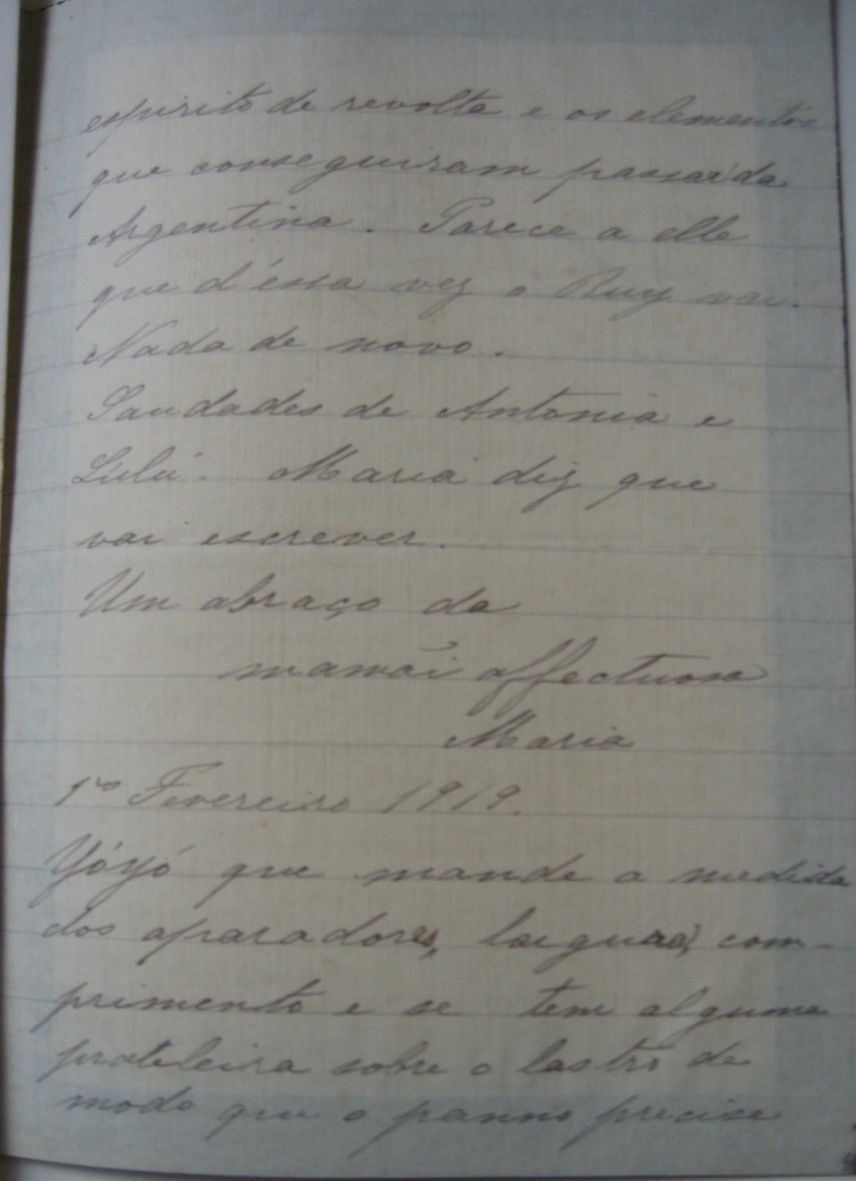 espirito de revolta e os elementos
que conseguiram passar da
Argentina. Parece a elle
que d'éssa vez o Ruy vai.
Nada de novo.
Saudades de Antonia e
Lulú. Maria diz que
vai escrever.
Um abraço da
mamãi affectuosa
Maria
1ro Fevereiro 1919.
Yóyó que mande a medida
dos aparadores, largura, com-
primento e se tem alguma
prateleira sobre o lastro de
modo que o panno precise